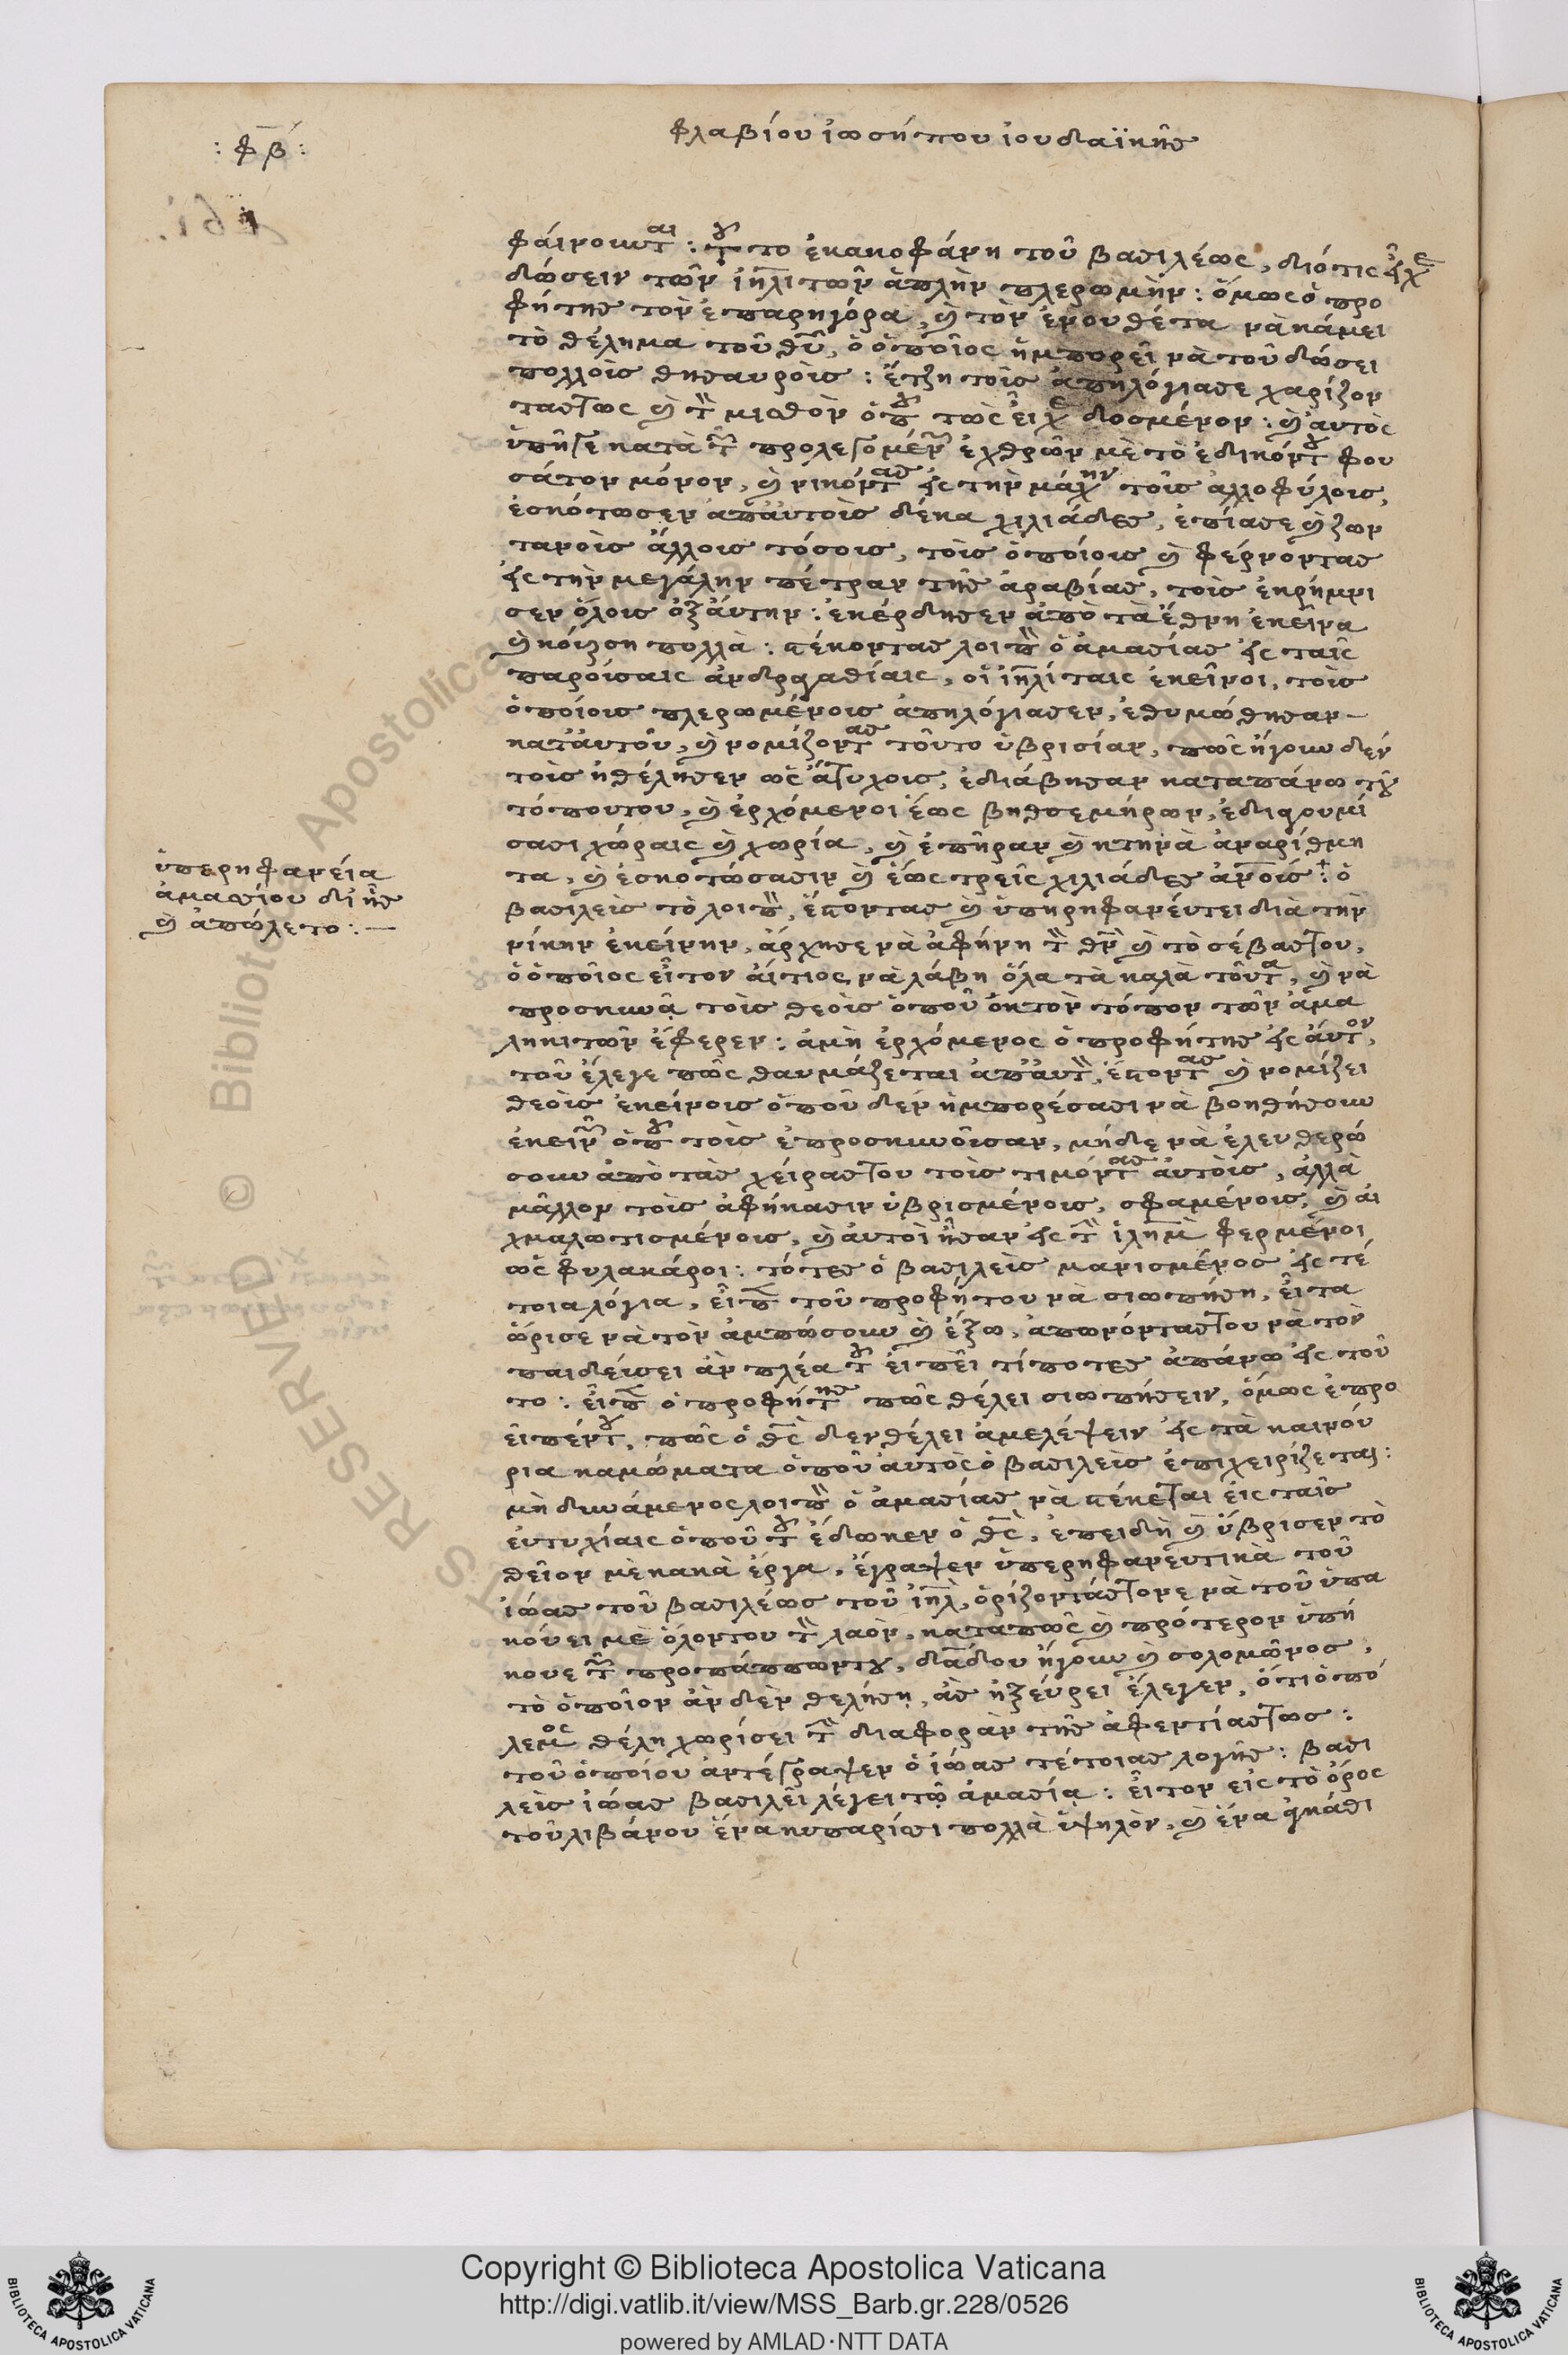 : φβ :
φλαβίου ἰωσήπου ἰουδαϊκῆς
φαίνουνται : τοῦτο ἐκακοφάνη τοῦ βασιλέως, διότις εἶχε
δώσειν τῶν ἰηλιτῶν ἁπλὴν πλερωμὴν : ὅμως ὁ προ
φήτης τὸν ἐπαρηγόρα, καὶ τὸν ἐνουθέτα νὰ κάμει
τὸ θέλημα τοῦ θυ, ὁ ὁποῖος ἠμπορεῖ νὰ τοῦ δώσει
πολλοὺς θησαυρούς : ἔτζη τοὺς ἀπηλόγιασε χαρίζον
τάστως καὶ τὸν μισθὸν ὁποῦ τῶς εἶχε δοσμένον : καὶ αὐτὸς
ὑπῆγε κατὰ τῶν προλεγομένων ἐχθρῶν μὲ τὸ ἐδικόντου φου
σάτον μόνον, καὶ νικόντας εἰς τὴν μάχην τοὺς ἀλλοφύλους,
ἐσκότωσεν ἀπαὐτοὺς δέκα χιλιάδες, ἐπίασε καὶ ζων
τανοὺς ἄλλους τόσους, τοὺς ὁποίους καὶ φέρνοντας
εἰς τὴν μεγάλην πέτραν τῆς ἀραβίας, τοὺς ἐκρήμνι
σεν ὅλους ὀξαύτην : ἐκέρδησεν ἀπὸ τὰ ἔθνη ἐκεῖνα
καὶ κούρση πολλὰ : πέκοντας λοιπὸν ὁ ἀμασίας εἰς ταῖς
παρούσαις ἀνδραγαθίαις, οἱ ἰηλίταις ἐκεῖνοι, τοὺς
ὁποίους πλερωμένους ἀπηλόγιασεν, ἐθυμώθησαν
κατ' αὐτοῦ, καὶ νομίζοντας τοῦτο ὑβρισίαν, πῶς ἤγουν δὲν
τοὺς ἠθέλησεν ὡς ἄτυχους, ἐδιάβησαν καταπάνω τοῦ
τόπουτου, καὶ ἐρχόμενοι ἕως βηθσεμήρων, ἐδιαγουμί
σασι χώραις καὶ χωρία, καὶ ἐπῆραν καὶ κτηνὰ ἀναρίθμη
τα, καὶ ἐσκοτώσασιν καὶ ἕως τρεῖς χιλιάδες ἀνους : ὁ
βασιλεὺς τὸ λοιπὸν, ἔποντας καὶ ὑπηρηφανεύτει διὰ τὴν
νίκην ἐκείνην, ἄρχησε νὰ ἀφήνη τὸν θν καὶ τὸ σέβαστου,
ὁ ὁποῖος εἶτον αἴτιος νὰ λάβη ὅλα τὰ καλὰ τοῦτα, καὶ νὰ
προσκυνᾷ τοὺς θεοὺς ὁποῦ ὀκτὸν τόπον τῶν ἀμα
ληκιτῶν ἔφερεν : ἀμὴ ἐρχόμενος ὁ προφήτης εἰς αὐτὸν,
τοῦ ἔλεγε πῶς θαυμάζεται ἀπ' αὐτὸν, ἔποντας καὶ νομίζει
θεοὺς ἐκείνους ὁποῦ δὲν ἠμπορέσασι νὰ βοηθήσουν
ἐκεινῶν ὁποῦ τοὺς ἐπροσκυνοῦσαν, μήδε νὰ ἐλευθερώ
σουν ἀπὸ τὰς χείραστου τοὺς τιμόντας αὐτοὺς, ἀλλὰ
μᾶλλον τοὺς ἀφήκασιν ὑβρισμένους, σφαμένους, καὶ αἰ
χμαλωτισμένους, καὶ αὐτοὶ ἦσαν εἰς τὴν ἱλημ φερμένοι
ὡς φυλακάροι : τότες ὁ βασιλεὺς μανισμένος εἰς τέ
τοια λόγια, εἶπε τοῦ προφήτου νὰ σιωπήση, εἶτα
ὥρισε νὰ τὸν ἀμπώσουν καὶ ἔξω, ἀπωνόνταστου νὰ τὸν
παιδεύσει ἂν πλέα τοῦ εἰπεῖ τίποτες ἀπάνω εἰς τοῦ
το : εἶπε ὁ προφήτης πῶς θέλει σιωπήσειν, ὅμως ἐπρο
εῖπέντου, πῶς ὁ θς δεν θέλει ἀμελέψειν εἰς τὰ καινού
ρια καμώματα ὁποῦ αὐτὸς ὁ βασιλεὺς ἐπιχειρίζεται :
μὴ δυνάμενος λοιπὸν ὁ ἀμασίας νὰ πέκεται εἰς ταῖς
εὐτυχίαις ὁποῦ τοῦ ἔδωκεν ὁ θς, ἐπειδὴ καὶ ὕβρισεν τὸ
θεῖον μὲ κακὰ ἔργα, ἔγραψεν ὑπερηφανευτικὰ τοῦ
ἰώας τοῦ βασιλέως τοῦ ἰηλ, ὁρίζοντάστονε νὰ τοῦ ὑπα
κούει μὲ ὅλοντου τὸν λαὸν, καταπῶς καὶ πρότερον ὑπή
κουε τῶν προπάππωντου, δαδ ἤγουν καὶ σολομῶνος,
τὸ ὁποῖον ἂν δὲν θελήση, ἂς ἠξεύρει ἔλεγεν, ὅτι ὁ πό
λεμος θέλη χωρίσει τὴν διαφορὰν τῆς ἀφεντίαστως :
τοῦ ὁποίου ἀντέγραψεν ὁ ἰώας τέτοιας λογῆς : βασι
λεὺς ἰώας βασιλεῖ λέγει τῷ ἀμασίᾳ : εἶτον εἰς τὸ ὄρος
τοῦ λιβάνου ἕνα κυπαρίσι πολλὰ ὑψηλὸν, καὶ ἕνα ἀγκάθι
ὑπερηφανεία
ἀμασίου δι ἧς
καὶ ἀπώλετο :
Copyright © Biblioteca Apostolica Vaticana
http://digi.vatlib.it/view/MSS_Barb.gr.228/0526
powered by AMLAD·NTT DATA
BIBLIOTECA APOSTOLICA VATICANA
BIBLIOTECA APOSTOLICA VATICANA